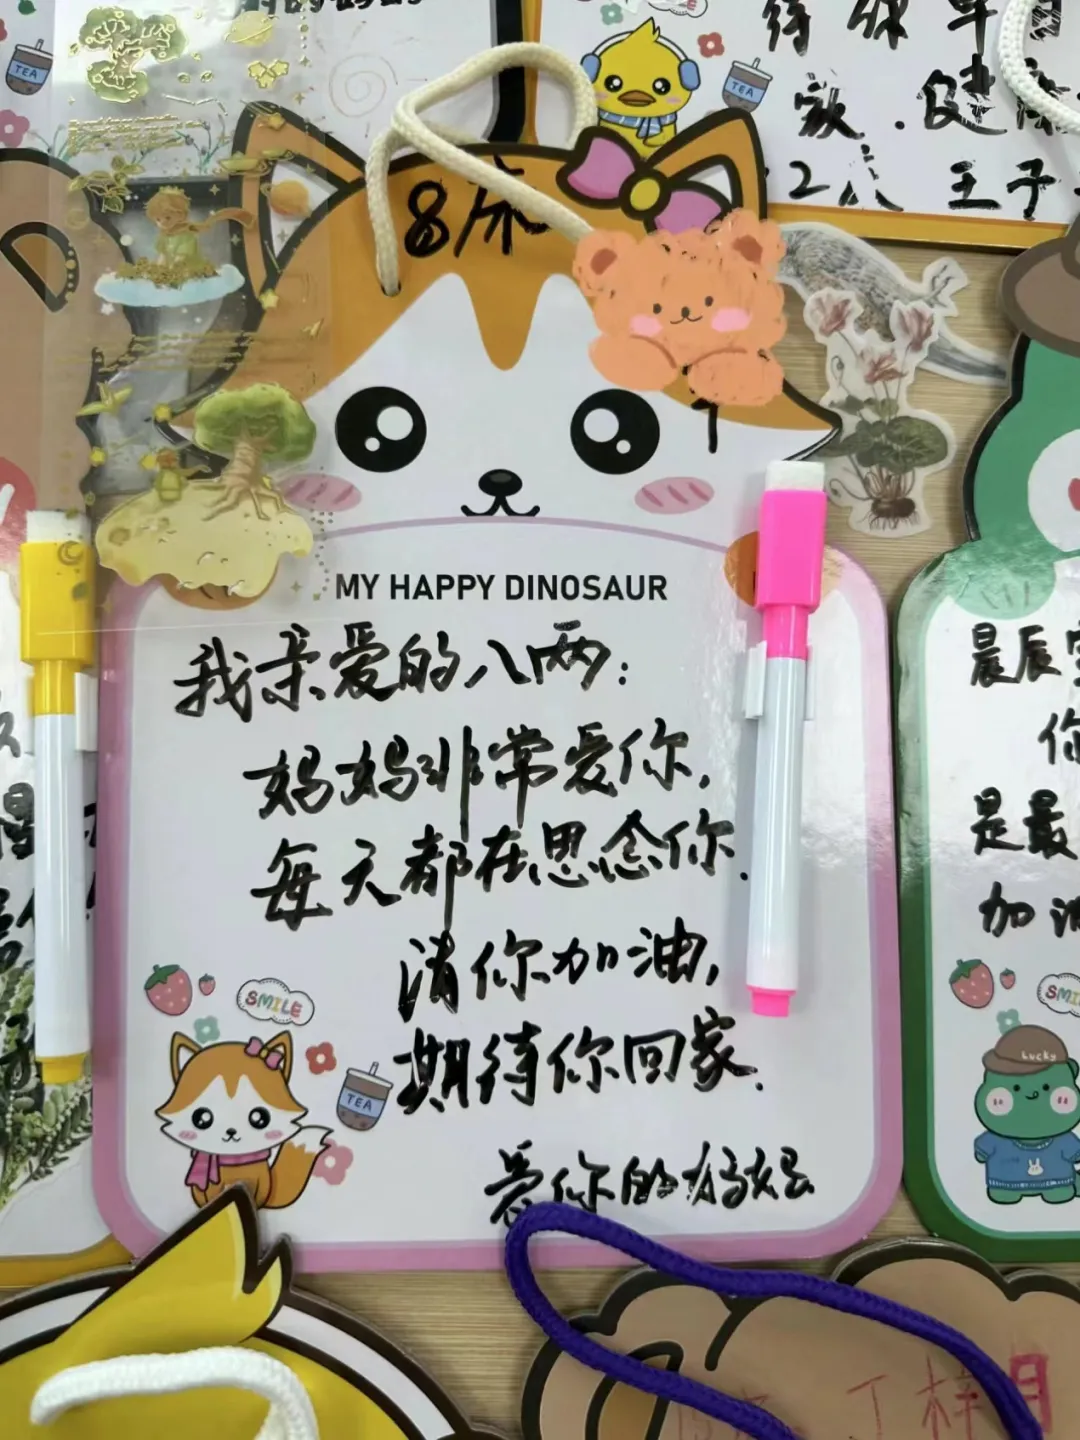 TEA
SMILE
TEA
待你早日
家.健康
王子
8床
MY HAPPY DINOSAUR
我亲爱的八两:
妈妈非常爱你,
每天都在思念你.
请你加油,
期待你回家.
爱你的妈妈
SMILE
TEA
晨辰宝
你
是最
加油
Lucky
丁梓月